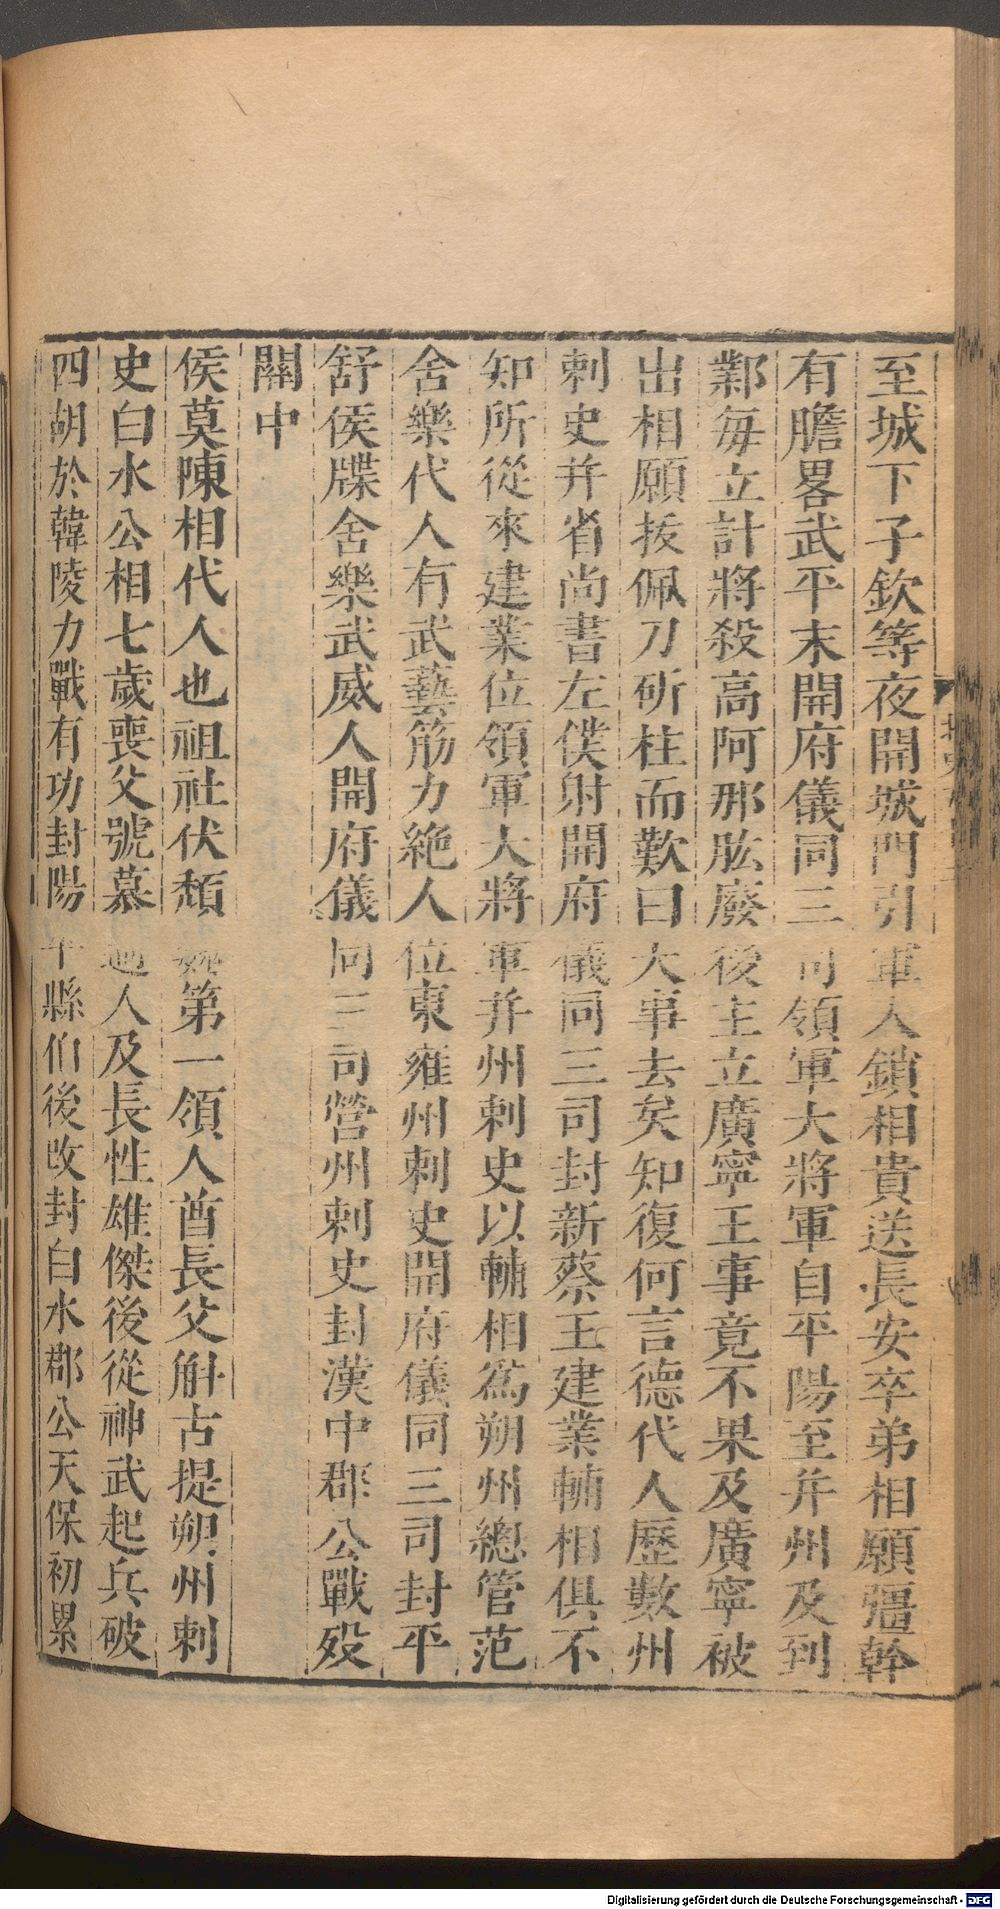 至城下子欽等夜開城門引軍人鎖相貴送長安卒弟相願彊幹
有膽畧武平末開府儀同三司領軍大將軍自平陽至并州及到
鄴毎立計將殺高阿那肱廢後主立廣寧王事竟不果及廣寧被
出相願拔佩刀斫柱而歎曰大事去矣知復何言德代人歷數州
刺史并省尚書左僕射開府儀同三司封新蔡王建業輔相俱不
知所從來建業位領軍大將軍并州刺史以輔相爲朔州總管范
舍樂代人有武藝筋力絶人位東雍州刺史開府儀同三司封平
舒侯牒舍樂武威人開府儀同三司營州刺史封漢中郡公戰歿
關中
侯莫陳相代人也祖社伏頹魏第一領人酋長父斛古提朔州刺
史白水公相七歲喪父號慕過人及長性雄傑後從神武起兵破
四胡於韓陵力戰有功封陽平縣伯後改封白水郡公天保初累
Digitalisierung gefördert durch die Deutsche Forschungsgemeinschaft - DFG